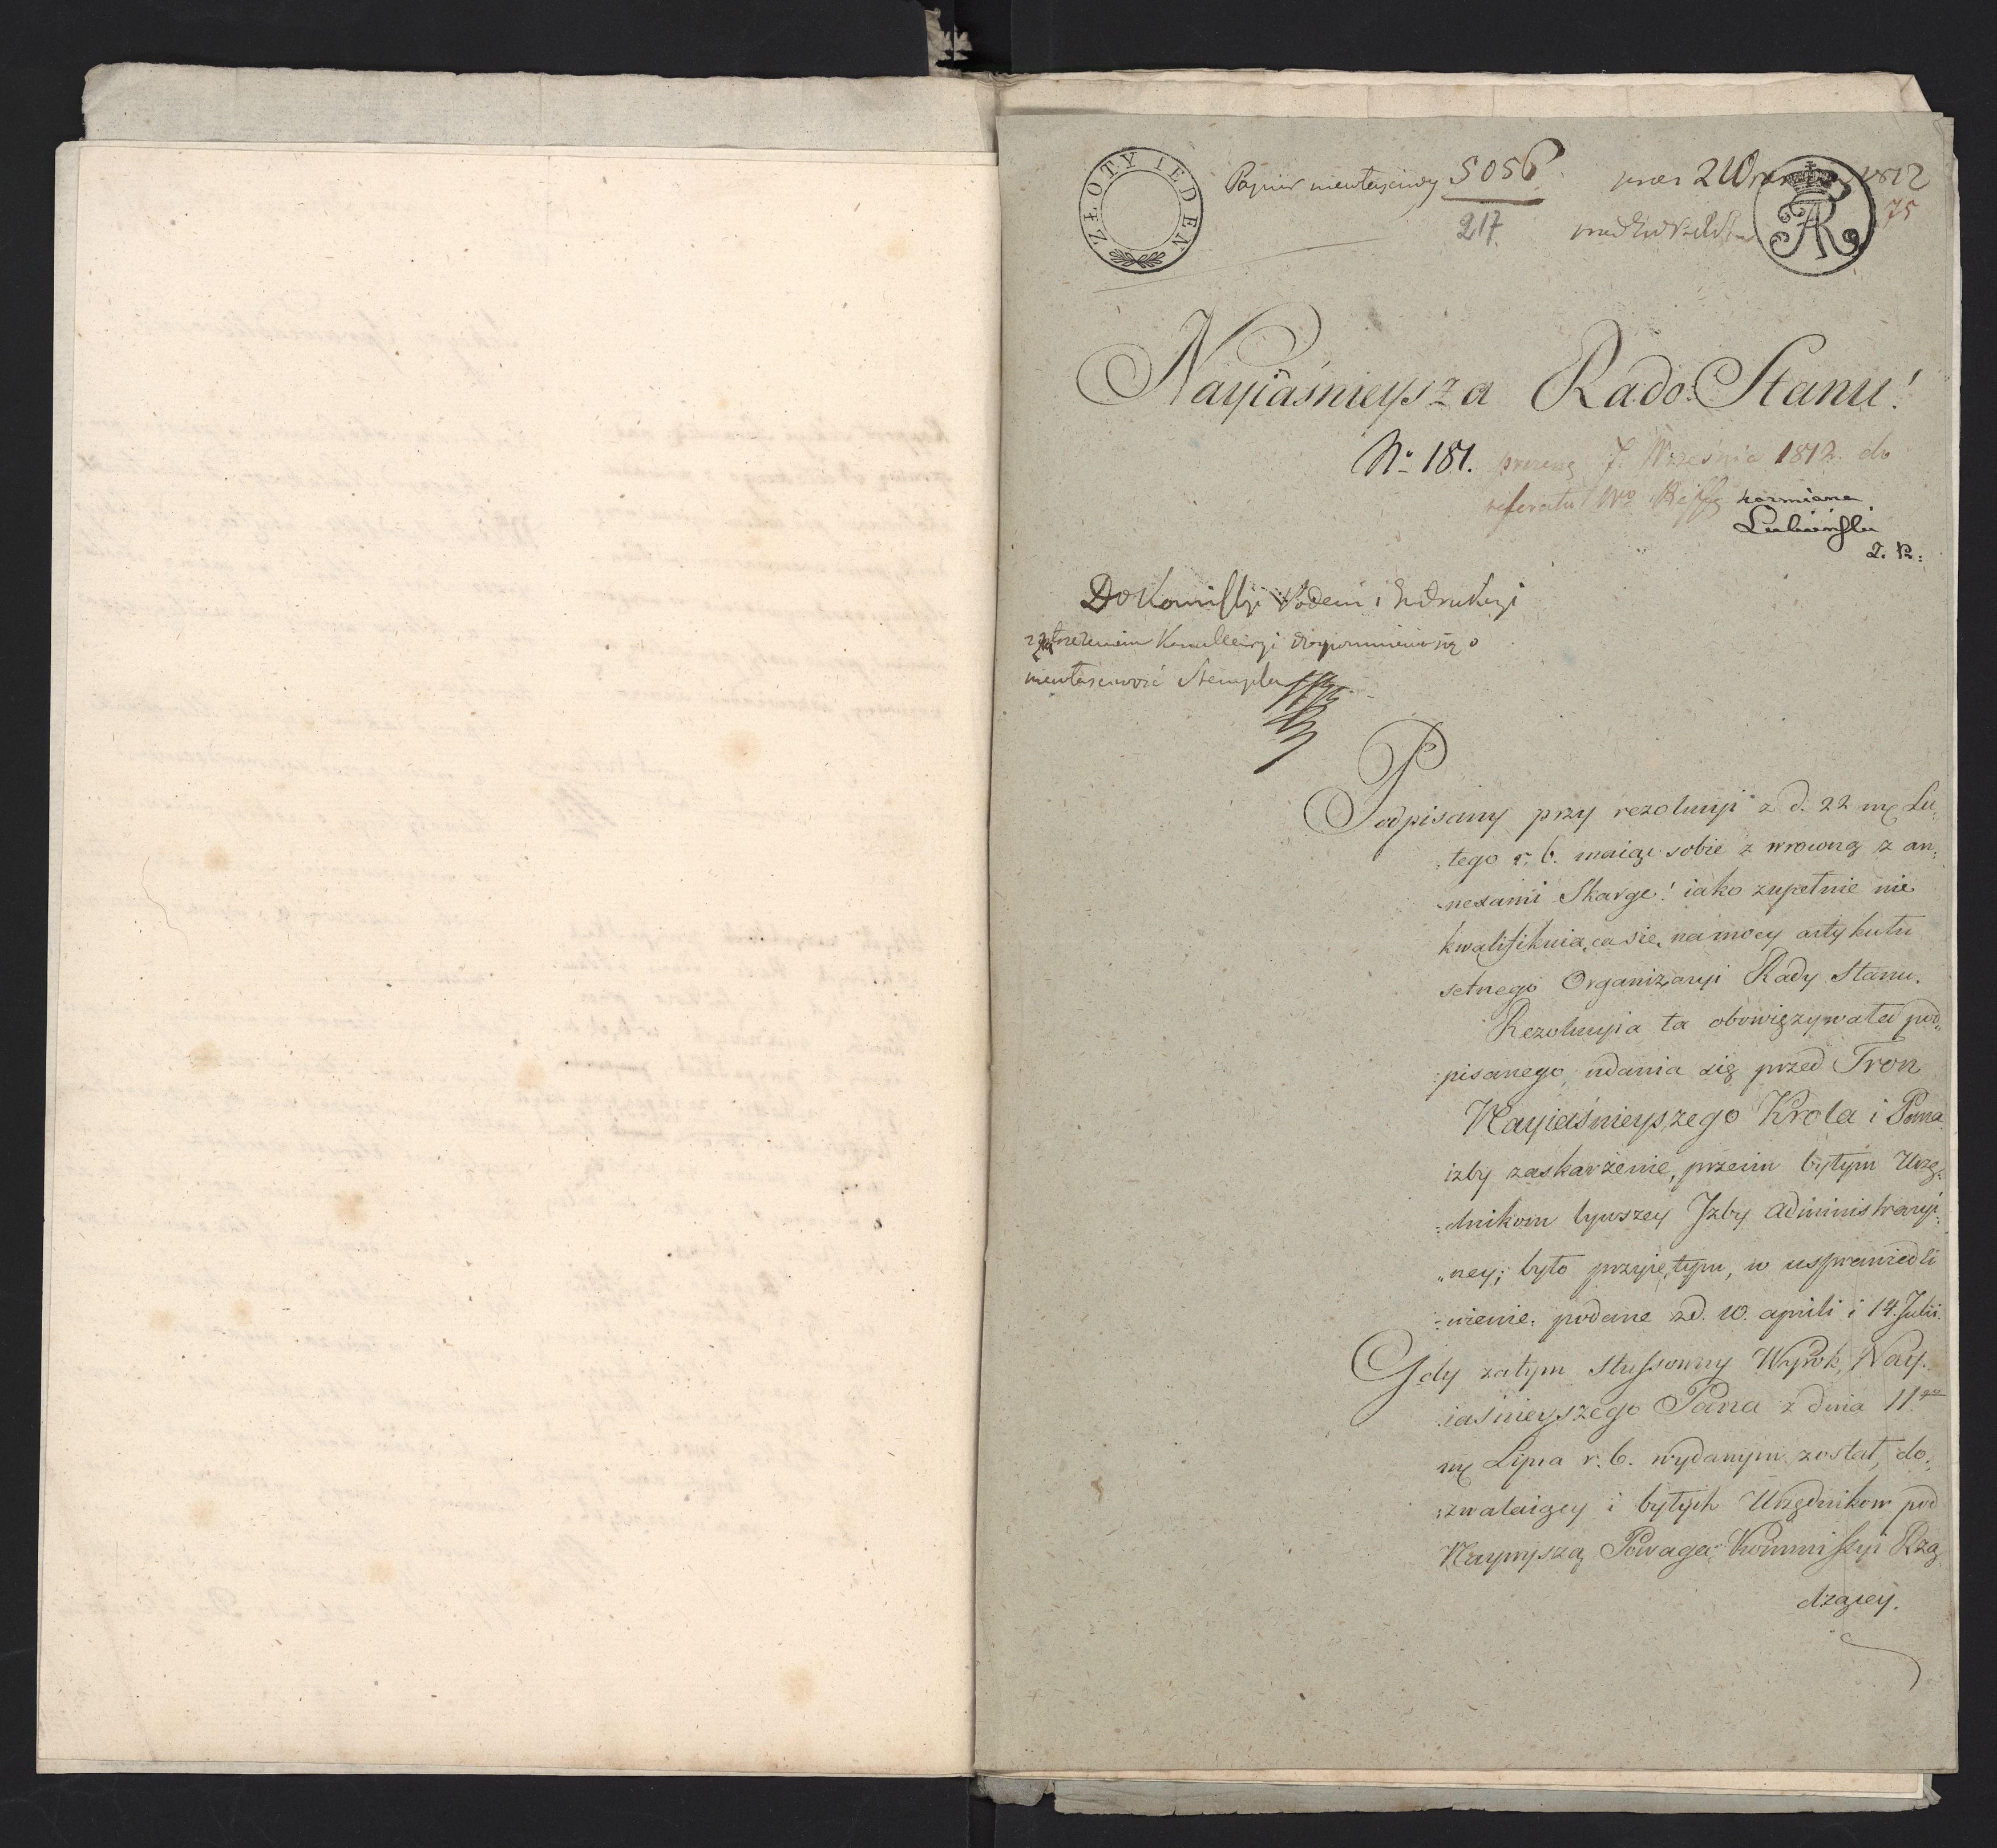 ZŁOTY IEDEN
Papier niewłaściwy 5056 2 1812
217 75
Nayiaśnieysza Rado Stanu!
No 181. 7. Września 1812 do
referatu Wo Kozmiana
Lubieński
Do Kommissyi Podań i Instrukcyi
z Kancellaryi o
niewłaściwość Stempla
Podpisany przy rezolucyi z d. 22 mca Lu,
:tego r. b. maiąc sobie zwrowną z an:
nexami Skargę! iako zupełnie nie
kwalifikuiącą się, na mocy artykułu
setnego Organizacyi Rady Stanu.
Rezolucyia ta obowiązywała pod„
:pisanego, udania się przed Tron
Nayiaśnieyszego Krola i Pana
izby zaskarżenie, przeciw byłym Urzę:
:dnikom bywszey Izby Administracyi:
„ney; było przyiętym, w usprawiedli
:wienie: podane zd. 10. aprili i 14. Julii.
Gdy zatym stussowny Wyrok, Nay.
iaśnieyszego Pana z dnia 11go
mca Lipca r. b. wydanym został, do:
:zwalaiący i byłych Urzędnikow pod
Naywyszą Powagą Kommissyi Rzą
dzącey.